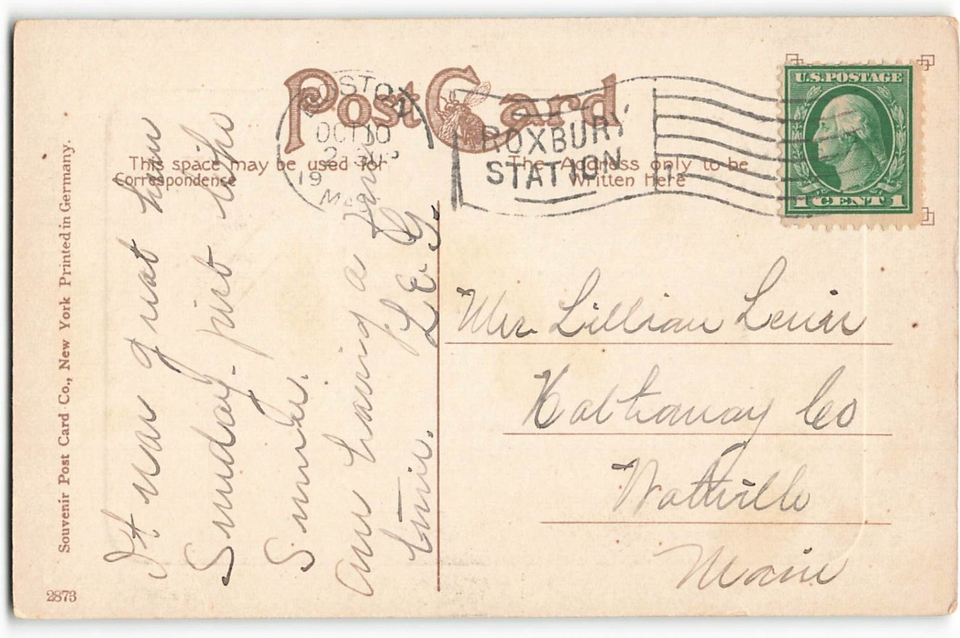 Post Card
This space may be used for
Correspondence
The Address only to be
Written Here
OCT 10
19
ROXBURY
STATION
U.S. POSTAGE
1 CENT 1
Souvenir Post Card Co., New York Printed in Germany.
2873
It was great here
Sunday. just like
Summer.
Am having a grand
time. L. E. G.
Lillian Lewis
Hathaway Co
Wattville
Main